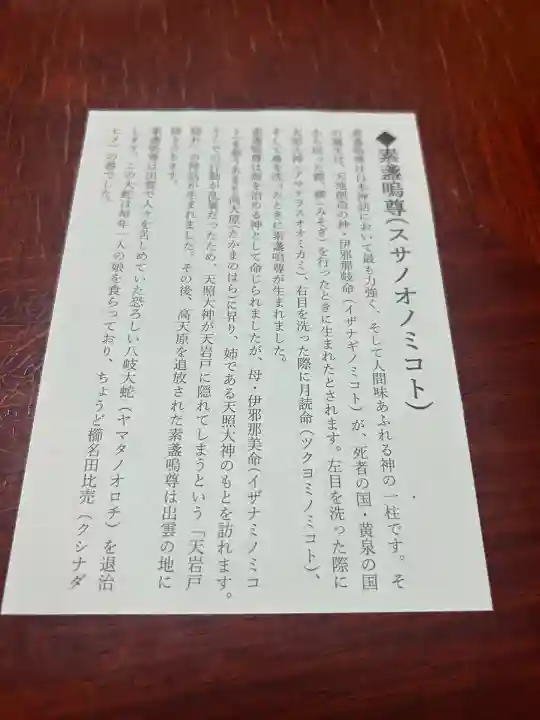 ◆素盞嗚尊(スサノオノミコト)
素盞嗚尊は日本神話において最も力強く、そして人間味あふれる神の一柱です。そ
の誕生は、天地創造の神・伊邪那岐命(イザナギノミコト)が、死者の国・黄泉の国
から戻った際、禊(みそぎ)を行ったときに生まれたとされます。左目を洗った際に
天照大神(アマテラスオオミカミ)、右目を洗った際に月読命(ツクヨミノミコト)、
そして鼻を洗ったときに素盞嗚尊が生まれました。
素盞嗚尊は海を治める神として命じられましたが、母・伊邪那美命(イザナミノミコ
ト)を慕うあまり高天原(たかまのはら)に昇り、姉である天照大神のもとを訪れます。
そこでの行動が乱暴だったため、天照大神が天岩戸に隠れてしまうという「天岩戸
隠れ」の神話が生まれました。その後、高天原を追放された素盞嗚尊は出雲の地に
降り立ちます。
素盞嗚尊は出雲で人々を苦しめていた恐ろしい八岐大蛇(ヤマタノオロチ)を退治
します。この大蛇は毎年一人の娘を食らっており、ちょうど櫛名田比売(クシナダ
ヒメ)の番でした。